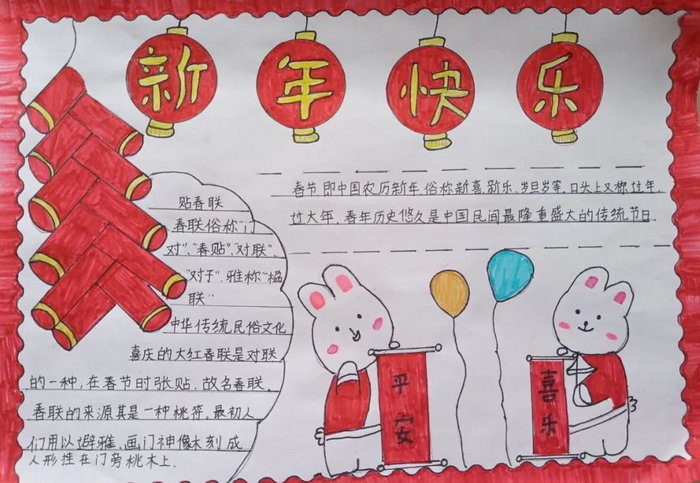 新年快乐
春节即中国农历新年,俗称新喜新乐,岁旦岁宰,口头上又称过年,
过大年,春年历史悠久是中国民间最隆重盛大的传统节日.
贴春联
春联俗称"门
对"、"春贴"、对联"、
"对子",雅称"楹
联"
中华传统民俗文化
喜庆的大红春联是对联
的一种,在春节时张贴,故名春联.
春联的来源其是一种桃符.最初人
们用以避雅,画门神像木刻成
人形挂在门旁桃木上.
平安
喜乐